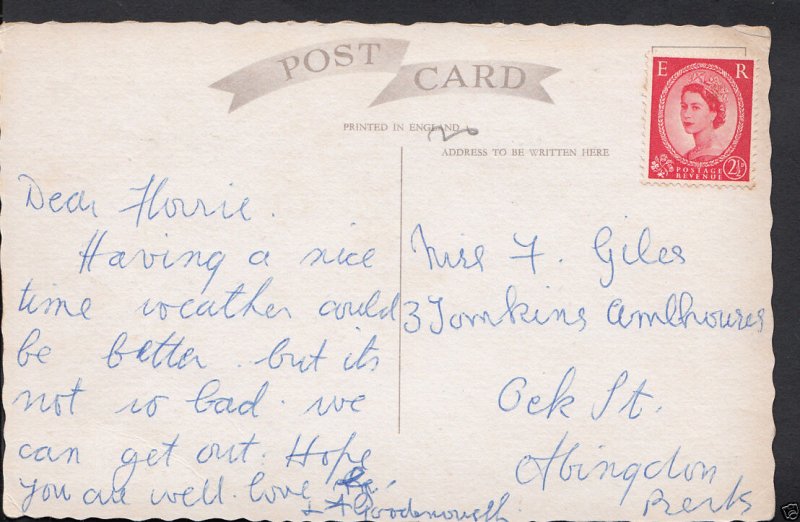 POST CARD
PRINTED IN ENGLAND
ADDRESS TO BE WRITTEN HERE
E R
POSTAGE
REVENUE
2½D
Dear Florrie.
Having a nice
time weather could
be better. but its
not so bad. we
can get out. Hope
you are well. love
Goodenough.
Miss F. Giles
3 Tomkins Almhouses
Ock St.
Abingdon
Berks